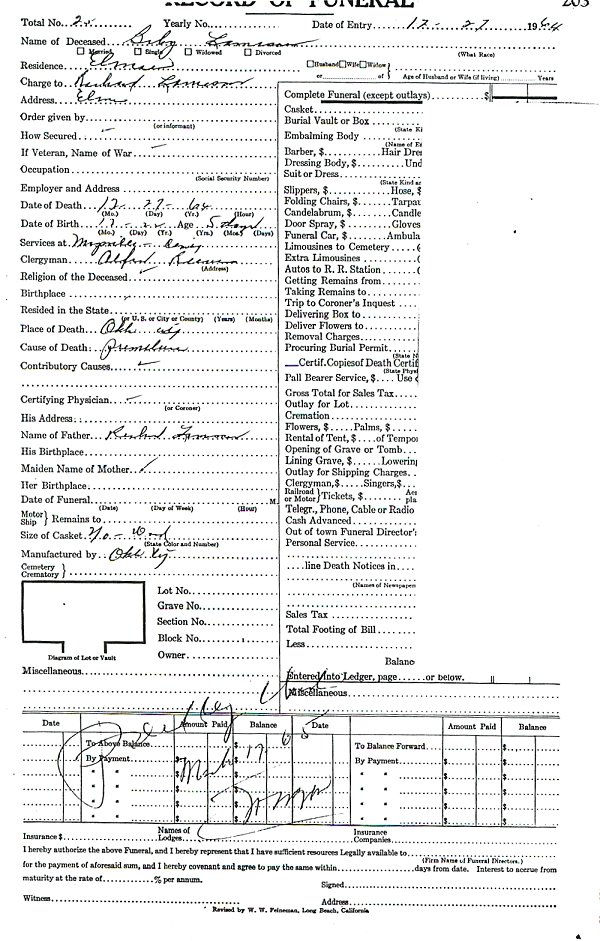 RECORD OF FUNERAL 203
Total No. Yearly No. Date of Entry 12 - 27 1964
Name of Deceased Baby
Married Single Widowed Divorced (What Race)
Residence Husband Wife Widow
or of Age of Husband or Wife (if living) Years
Charge to Richard
Address
Order given by
(or informant)
How Secured
If Veteran, Name of War
Occupation
(Social Security Number)
Employer and Address
Date of Death 12 - 27 - 64
(Mo.) (Day) (Yr.) (Hour)
Date of Birth 12 - Age 5
(Mo.) (Day) (Yr.) (Yrs.) (Mos.) (Days)
Services at
Clergyman Alfred
(Address)
Religion of the Deceased
Birthplace
Resided in the State
(or U. S. or City or County) (Years) (Months)
Place of Death
Cause of Death:
Contributory Causes
Certifying Physician
(or Coroner)
His Address
Name of Father Richard
His Birthplace
Maiden Name of Mother
Her Birthplace
Date of Funeral M.
(Date) (Day of Week) (Hour)
Motor Ship } Remains to
Size of Casket
(State Color and Number)
Manufactured by
Cemetery Crematory }
Lot No.
Grave No.
Section No.
Block No.
Owner
Diagram of Lot or Vault
Miscellaneous
Complete Funeral (except outlays) $
Casket
Burial Vault or Box
(State Ki
Embalming Body
(Name of E
Barber, $ Hair Dre
Dressing Body, $ Und
Suit or Dress
(State Kind ar
Slippers, $ Hose, $
Folding Chairs, $ Tarpa
Candelabrum, $ Candle
Door Spray, $ Gloves
Funeral Car, $ Ambula
Limousines to Cemetery
Extra Limousines
Autos to R. R. Station
Getting Remains from
Taking Remains to
Trip to Coroner's Inquest
Delivering Box to
Deliver Flowers to
Removal Charges
Procuring Burial Permit
(State N
Certif. Copies of Death Certif
(State Phys
Pall Bearer Service, $ Use
Gross Total for Sales Tax
Outlay for Lot
Cremation
Flowers, $ Palms, $
Rental of Tent, $ of Tempo
Opening of Grave or Tomb
Lining Grave, $ Lowerin
Outlay for Shipping Charges
Clergyman, $ Singers, $
Railroad or Motor } Tickets, $ pla
Telegr., Phone, Cable or Radio
Cash Advanced
Out of town Funeral Director's
Personal Service
line Death Notices in
(Names of Newspaper
Sales Tax
Total Footing of Bill
Less
Balanc
Entered into Ledger, page or below.
Miscellaneous
Date Amount Paid Balance Date Amount Paid Balance
To Above Balance $ To Balance Forward $
By Payment $ $ By Payment $ $
" " $ $ " " $ $
" " $ $ " " $ $
" " $ $ " " $ $
Insurance $ Names of Lodges Insurance Companies
I hereby authorize the above Funeral, and I hereby represent that I have sufficient resources Legally available to
(Firm Name of Funeral Directors.)
for the payment of aforesaid sum, and I hereby covenant and agree to pay the same within days from date. Interest to accrue from
maturity at the rate of % per annum. Signed
Witness Address
Revised by W. W. Feineman, Long Beach, California